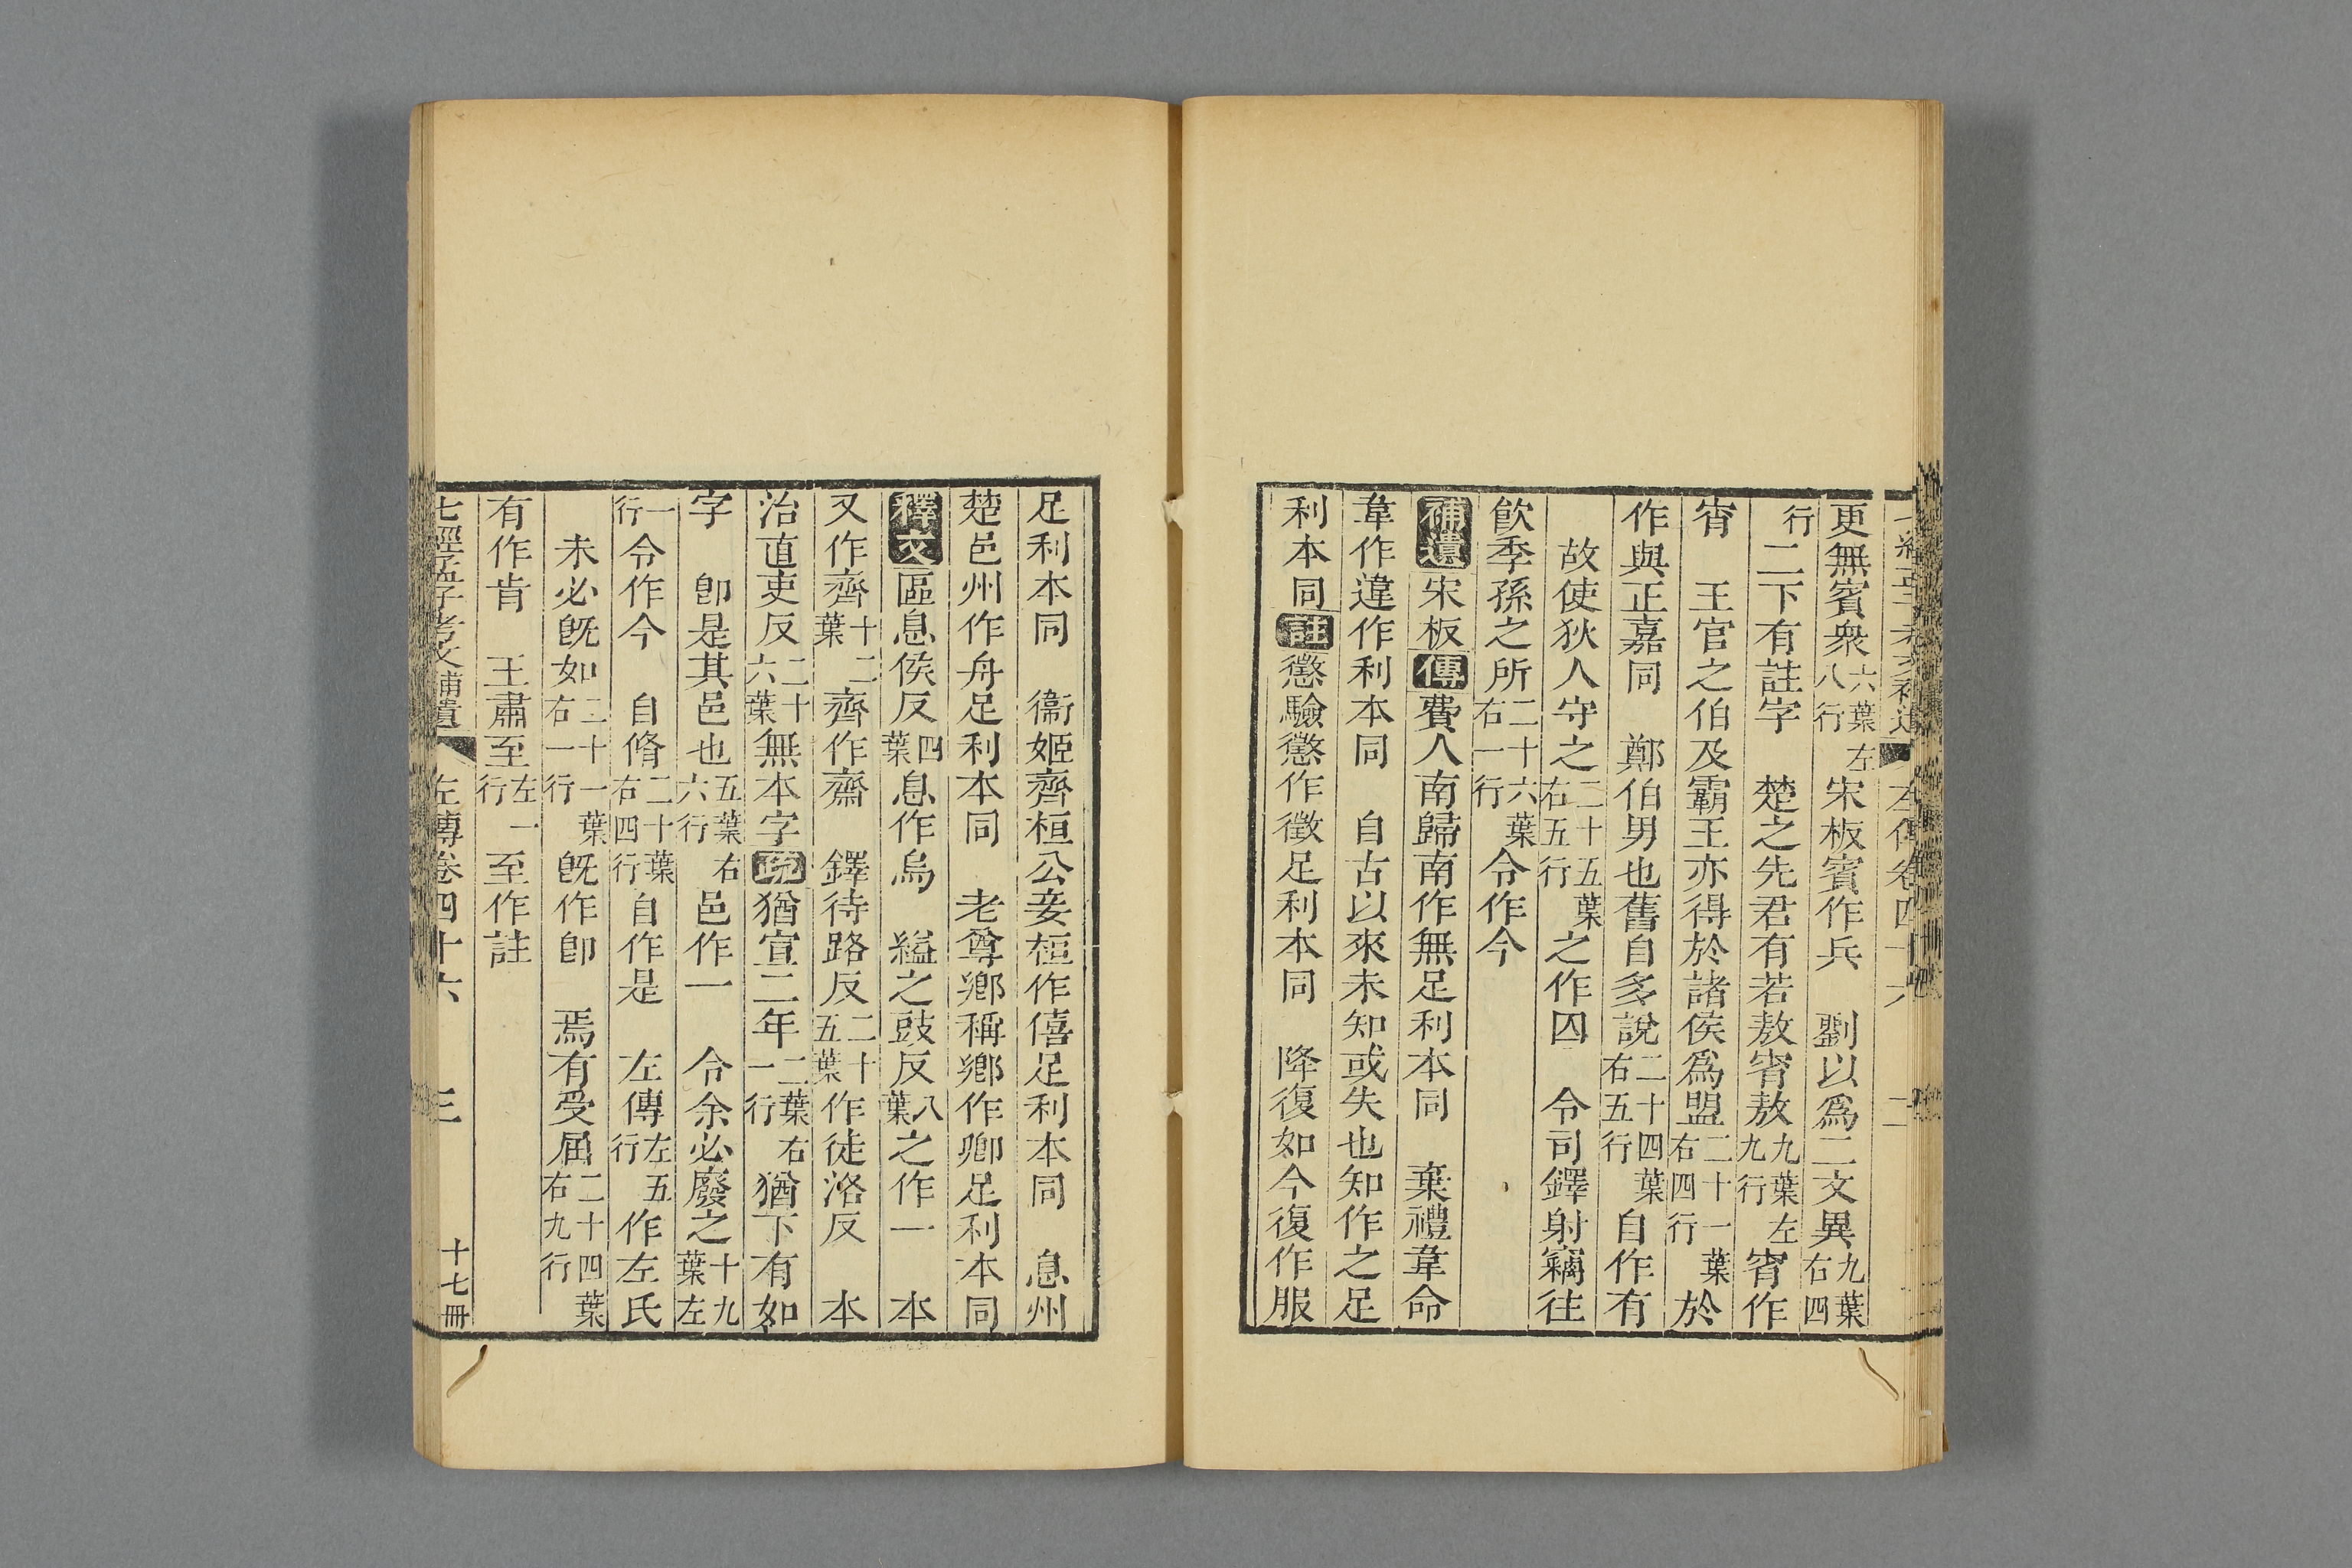 更無賓衆六葉左八行宋板賓作兵　劉以爲二文異九葉右四
行二下有註字　楚之先君有若敖宵敖九葉左九行宵作
宵　王官之伯及霸王亦得於諸侯爲盟二十一葉右四行於
作與正嘉同　鄭伯男也舊自多說二十四葉右五行自作有
故使狄人守之二十五葉右五行之作囚　令司鐸射竊往
飮季孫之所二十六葉右一行令作今
補遺宋板傳費人南歸南作無足利本同　棄禮韋命
韋作違作利本同　自古以來未知或失也知作之足
利本同註懲驗懲作徵足利本同　降復如今復作服
足利本同　衞姬齊桓公妾桓作僖足利本同　息州
楚邑州作舟足利本同　老尊鄉稱鄉作卿足利本同
釋文區息侯反四葉息作烏　縊之豉反八葉之作一　本
又作齊十二葉齊作齋　鐸待路反二十五葉作徒洛反　本
治直吏反二十六葉無本字疏猶宣二年二葉右一行猶下有如
字　卽是其邑也五葉右六行邑作一　令余必廢之十九葉左
一行令作今　自脩二十葉右四行自作是　左傳左五行作左氏
未必旣如二十一葉右一行旣作卽　焉有受屈二十四葉右九行
有作肯　王肅至左一行至作註
七經孟子考文補遺　左傳卷四十六　三　十七冊